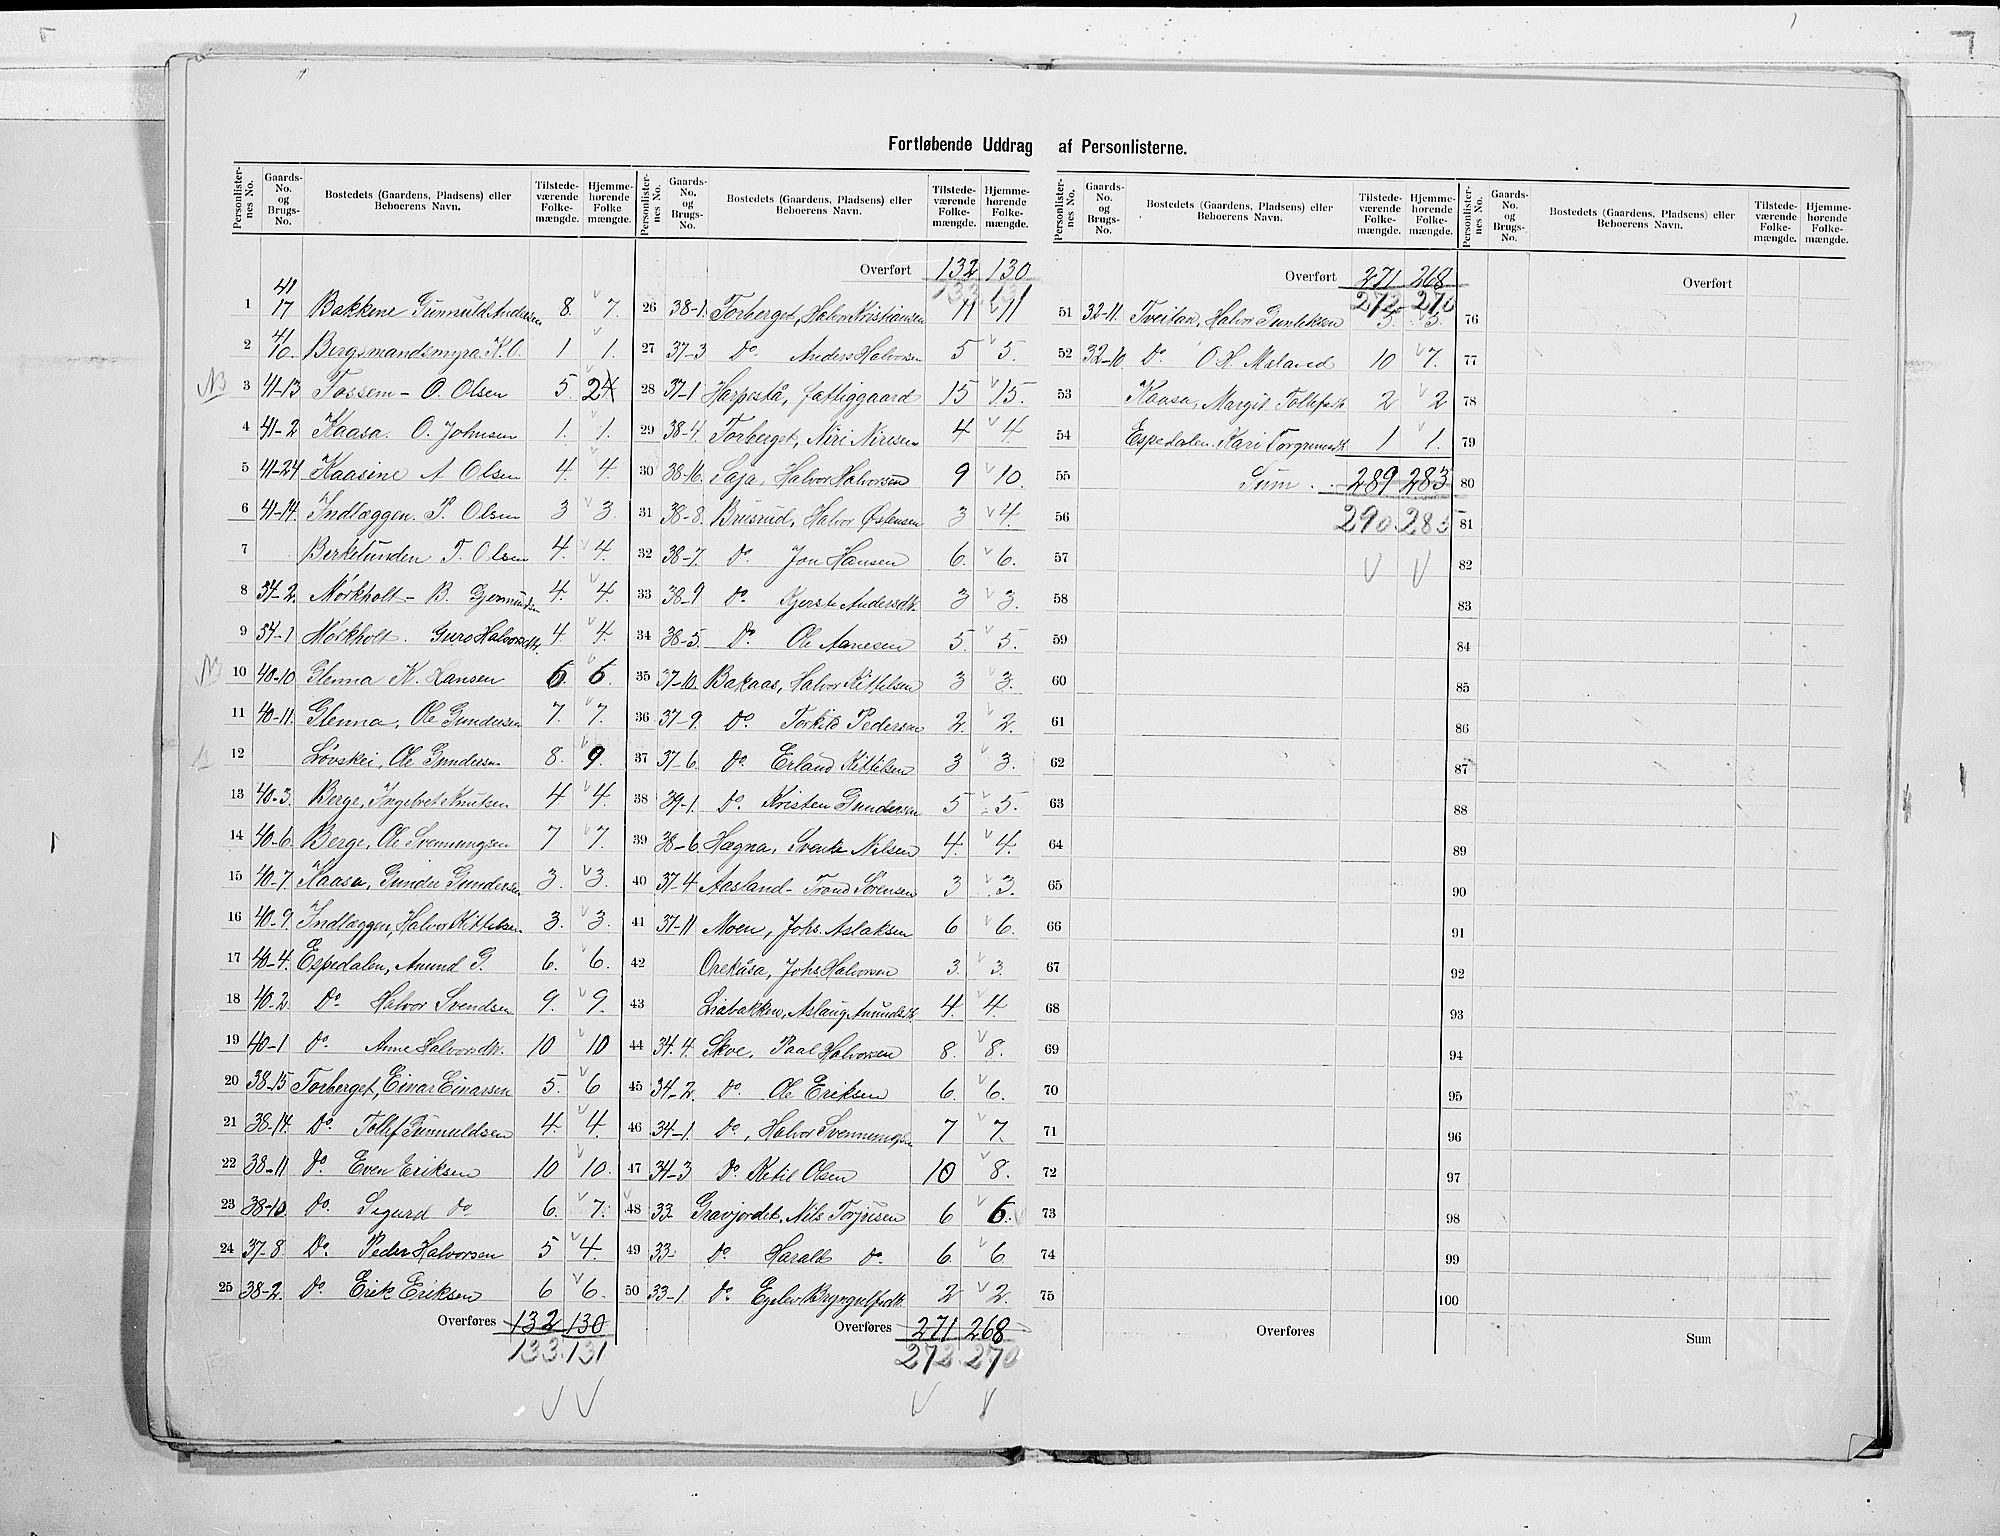 Fortløbende Uddrag af Personlisterne.
Personlister-nes No. | Gaards-No. og Brugs-No. | Bostedets (Gaardens, Pladsens) eller Beboerens Navn. | Tilstede-værende Folke-mængde. | Hjemme-hørende Folke mængde.
1 41 17 Bakkene Gunnuld Andersen 8. 7.
2 41 10 Bergsmandsmyra K. O. 1 1.
NB 3 41-13 Fossem - O. Olsen 5. 2 4
4 41-2 Kaasa. O. Johnsen 1. 1.
5 41-24 Kaasine A Olsen 4. 4
6 41-14. Indlæggen. P. Olsen 3 3.
7 Berkelunden T. Olsen 4. 4.
8 34-2. Mørkholt - B. Gjermunden 4. 4.
9 34-1 Mørkholt. Guro Halvorsdtr. 4. 4.
NB 10 40-10 Glenna K. Hansen 6. 6.
11 40-11. Glenna, Ole Gundersen 7. 7.
12 Løvskei, Ole Gundersen 8. 9.
13 40-3. Berge, Ingebret Knutsen 4 4.
14 40-6. Berge, Ole Svennungsen 7 7.
15 40-7 Kaasa, Gunder Gundersen 3. 3.
16 40-9. Indlæggen, Halvor Kittelsen 3. 3.
17 40-4. Espedalen, Anund G. 6. 6.
18 40-2. Do. Halvor Svendsen 9. 9.
19 40-1 Do. Anne Halvorsdtr. 10 10
20 38-15 Torberget, Einar Einarsen 5. 6
21 38-14. Do. Tollef Gunnuldsen 4. 4.
22 38-11 Do. Even Eriksen 10 10.
23 38-10. Do. Sigurd Do 6. 7.
24 37-8. Do. Peder Halvorsen 5 4.
25 38-2. Do. Erik Eriksen 6 6.
Overføres 132 130
133. 131
Personlister-nes No. | Gaards-No. og Brugs-No. | Bostedets (Gaardens, Pladsens) eller Beboerens Navn. | Tilstede-værende Folke-mængde. | Hjemme-hørende Folke-mængde.
Overført 132 130
133 131
26 38-1. Torberget, Halvor Kristiansen 11 11
27 37-3 Do. Anders Halvorsen 5 5.
28 37-1 Harpestå, fattiggaard 15 15.
29 38-4. Torberget, Niri Nirisen 4 4.
30 38-16. Saja, Halvor Halvorsen 9 10.
31 38-8. Brusrud, Halvor Østensen 3 4.
32 38-7. Do. Jon Hansen 6. 6.
33 38-9 Do. Kjerste Andersdtr. 3 3.
34 38-5. Do. Ole Aanesen 5. 5.
35 37-10. Bakaas, Halvor Kittelsen 3 3.
36 37-9. Do. Torkild Pedersen 2. 2.
37 37-6. Do. Erland Kittilsen 3 3.
38 39-1. Do. Kristen Gundersen 5 5.
39 38-6. Hægna, Svenke Nilsen 4. 4.
40 37-4 Aasland - Trond Sørensen 3 3.
41 37-11 Moen, Johs. Aslaksen 6 6.
42 Orekåsa, Johs Halvorsen 3. 3.
43 Liabakken, Aslaug Anundsdtr. 4. 4.
44 34. 4. Skoe, Paal Halvorsen 8. 8.
45 34-2. Do. Ole Eriksen 6. 6.
46 34-1. Do, Halvor Svennungsen 7 7.
47 34-3 Do. Ketil Olsen 10 8.
48 33- Gravjordet, Nils Torjusen 6 6.
49 33- Do. Harald Do. 6. 6
50 33-1. Do. Egelev Bryngulfsdtr. 2 2.
Overføres 271 268
272. 270
Personlister-nes No. | Gaards-No. og Brugs-No. | Bostedets (Gaardens, Pladsens) eller Beboerens Navn. | Tilstede-værende Folke-mængde. | Hjemme-hørende Folke-mængde.
Overført 271 268
272 270
51 32-11. Tveitan, Halvor Gunleksen 3. 3.
52 32-10 Do. O H. Maland 10 7.
53 Kaasa, Margit Tollefsdtr. 2 2
54 Espedalen. Kari Torgrimsdtr. 1 1.
55 Sum . . 289 283
56 290. 285
57
58
59
60
61
62
63
64
65
66
67
68
69
70
71
72
73
74
75
Overføres
Personlister-nes No. | Gaards-No. og Brugs-No. | Bostedets (Gaardens, Pladsens) eller Beboerens Navn. | Tilstede-værende Folke-mængde. | Hjemme-hørende Folke-mængde.
Overført
76
77
78
79
80
81
82
83
84
85
86
87
88
89
90
91
92
93
94
95
96
97
98
99
100
Sum